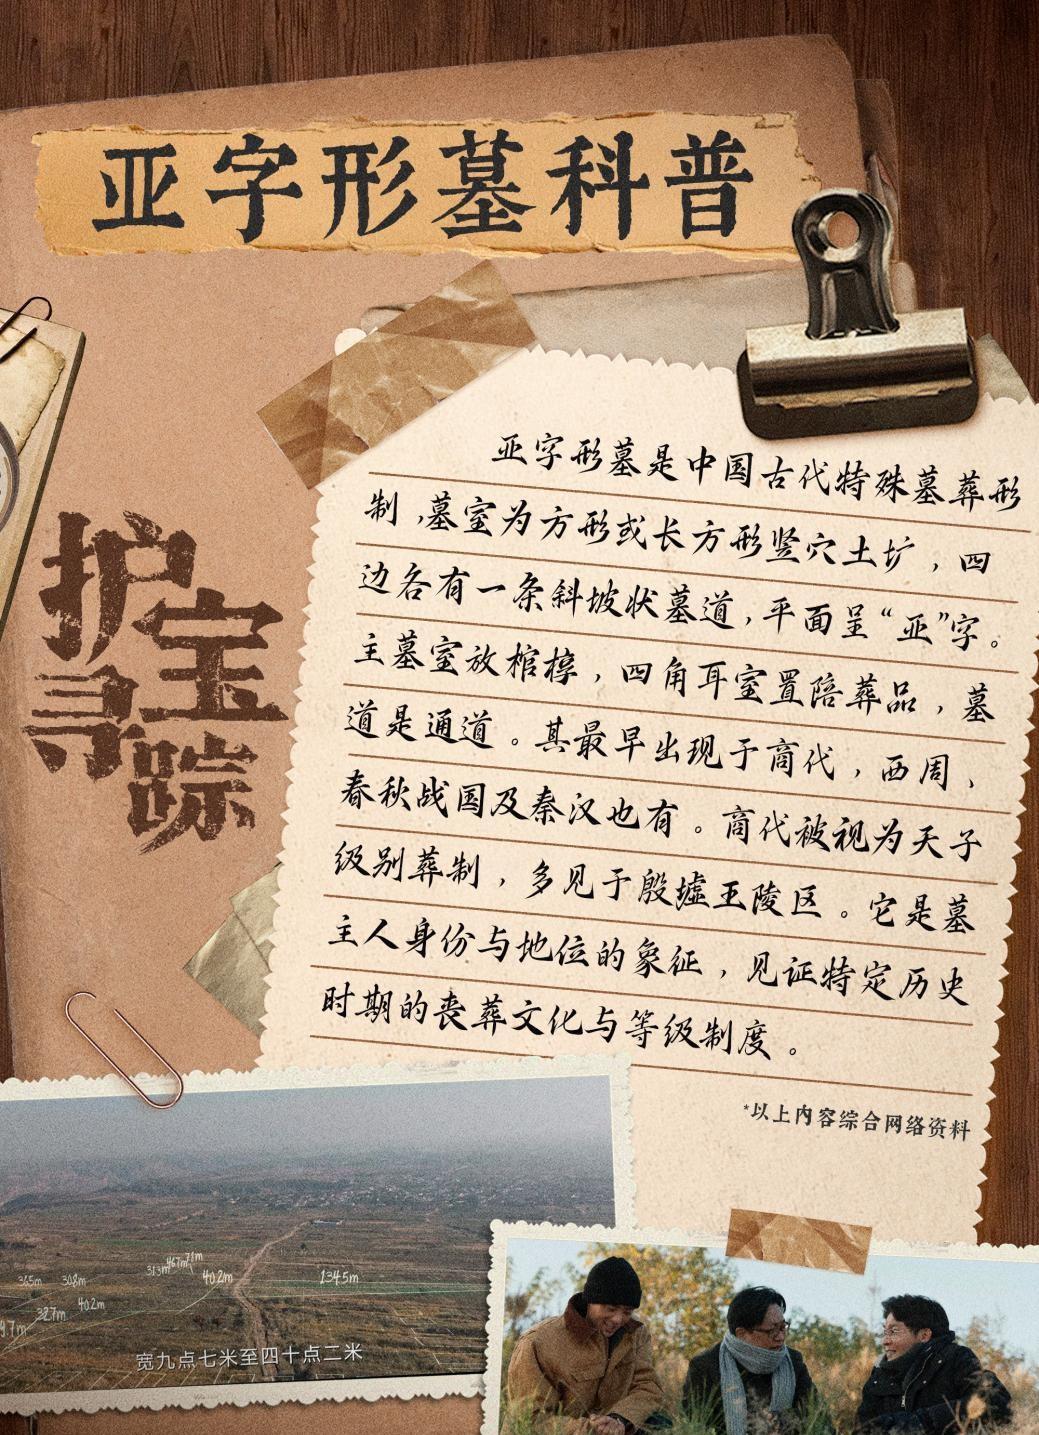 亚字形墓科普
护宝
寻踪
亚字形墓是中国古代特殊墓葬形
制，墓室为方形或长方形竖穴土圹，四
边各有一条斜坡状墓道，平面呈“亚”字。
主墓室放棺椁，四角耳室置陪葬品，墓
道是通道。其最早出现于商代，西周、
春秋战国及秦汉也有。商代被视为天子
级别葬制，多见于殷墟王陵区。它是墓
主人身份与地位的象征，见证特定历史
时期的丧葬文化与等级制度。
*以上内容综合网络资料
40.2m
134.5m
40.2m
宽九点七米至四十点二米